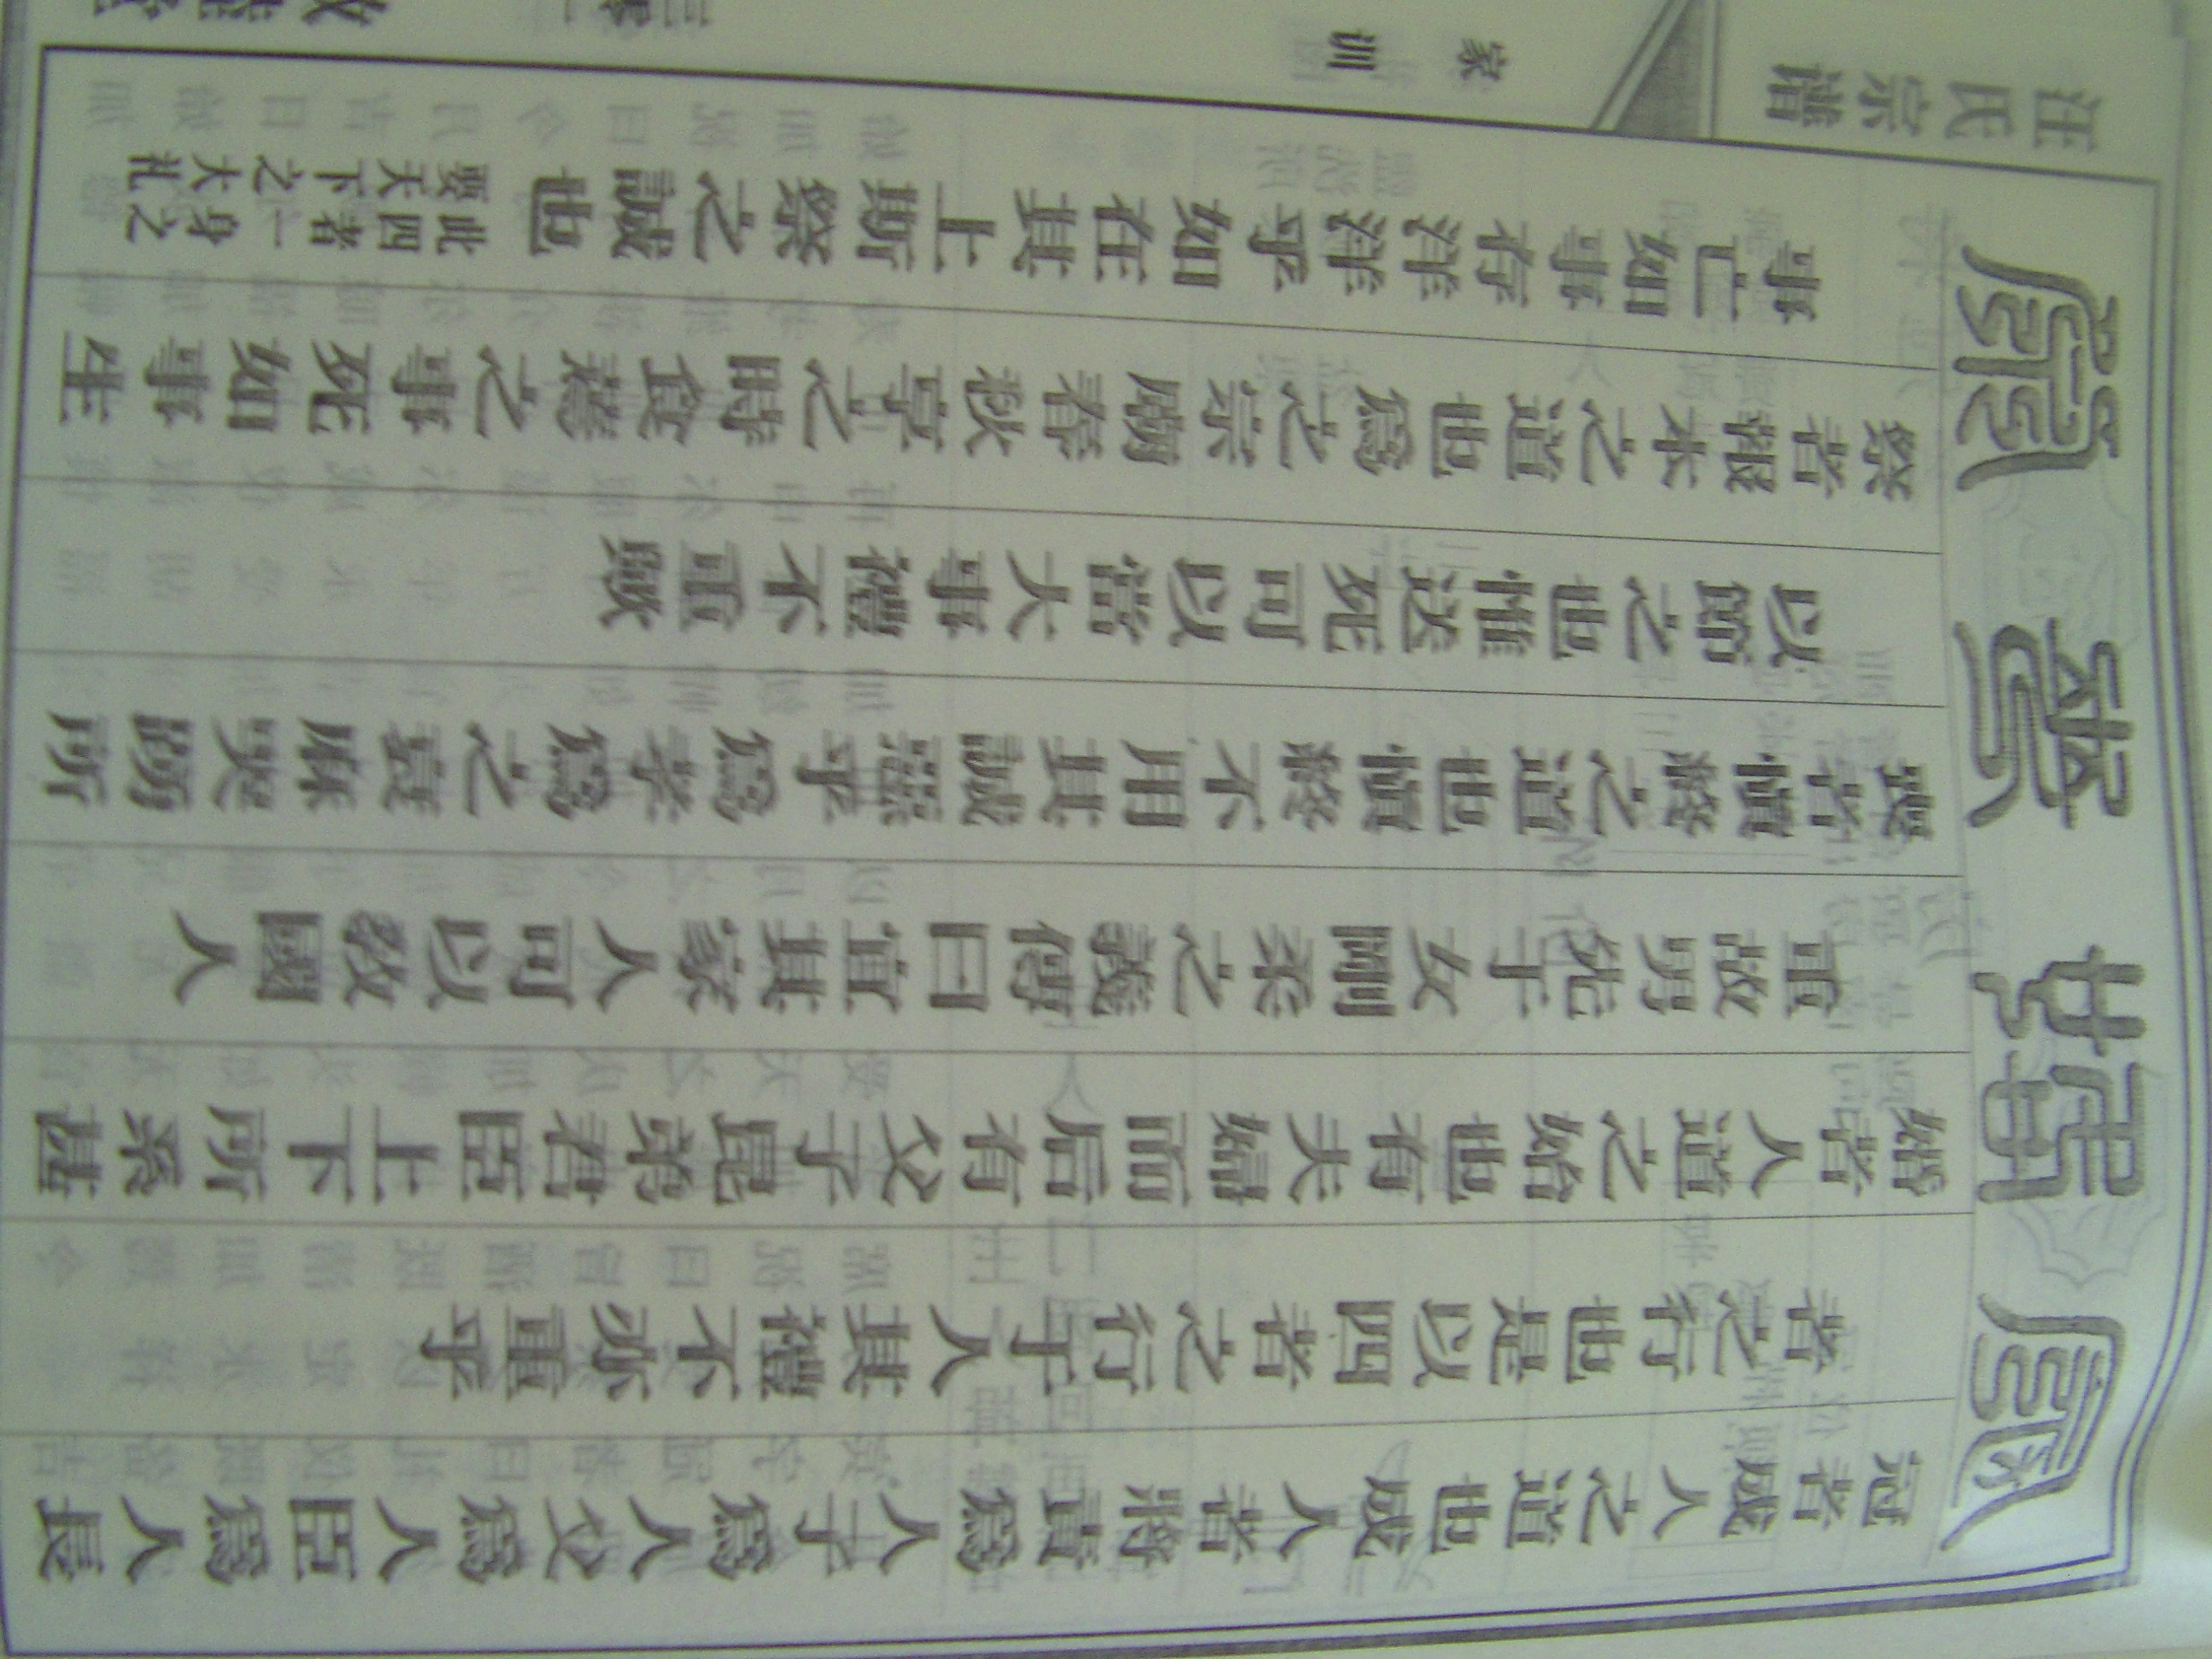 冠 婚 喪 祭
冠者成人之道也成人者將責爲人子爲人父爲人臣爲人長
者之行也是以四者之行于人其禮不亦重乎
婚者人道之始也有夫婦而后有父子昆弟君臣上下所系甚
重故男先于女剛柔之義傳曰宜其家人可以教國人
喪者慎終之道也慎終不用其誠惡乎爲孝爲之衰麻哭踊所
以節之也惟送死可以當大事禮不重歟
祭者報本之道也爲之宗廟春秋享之時食薦之事死如事生
事亡如事存洋洋乎如在其上斯祭之誠也
此四者一身之
要天下之大礼
汪氏宗谱
家训